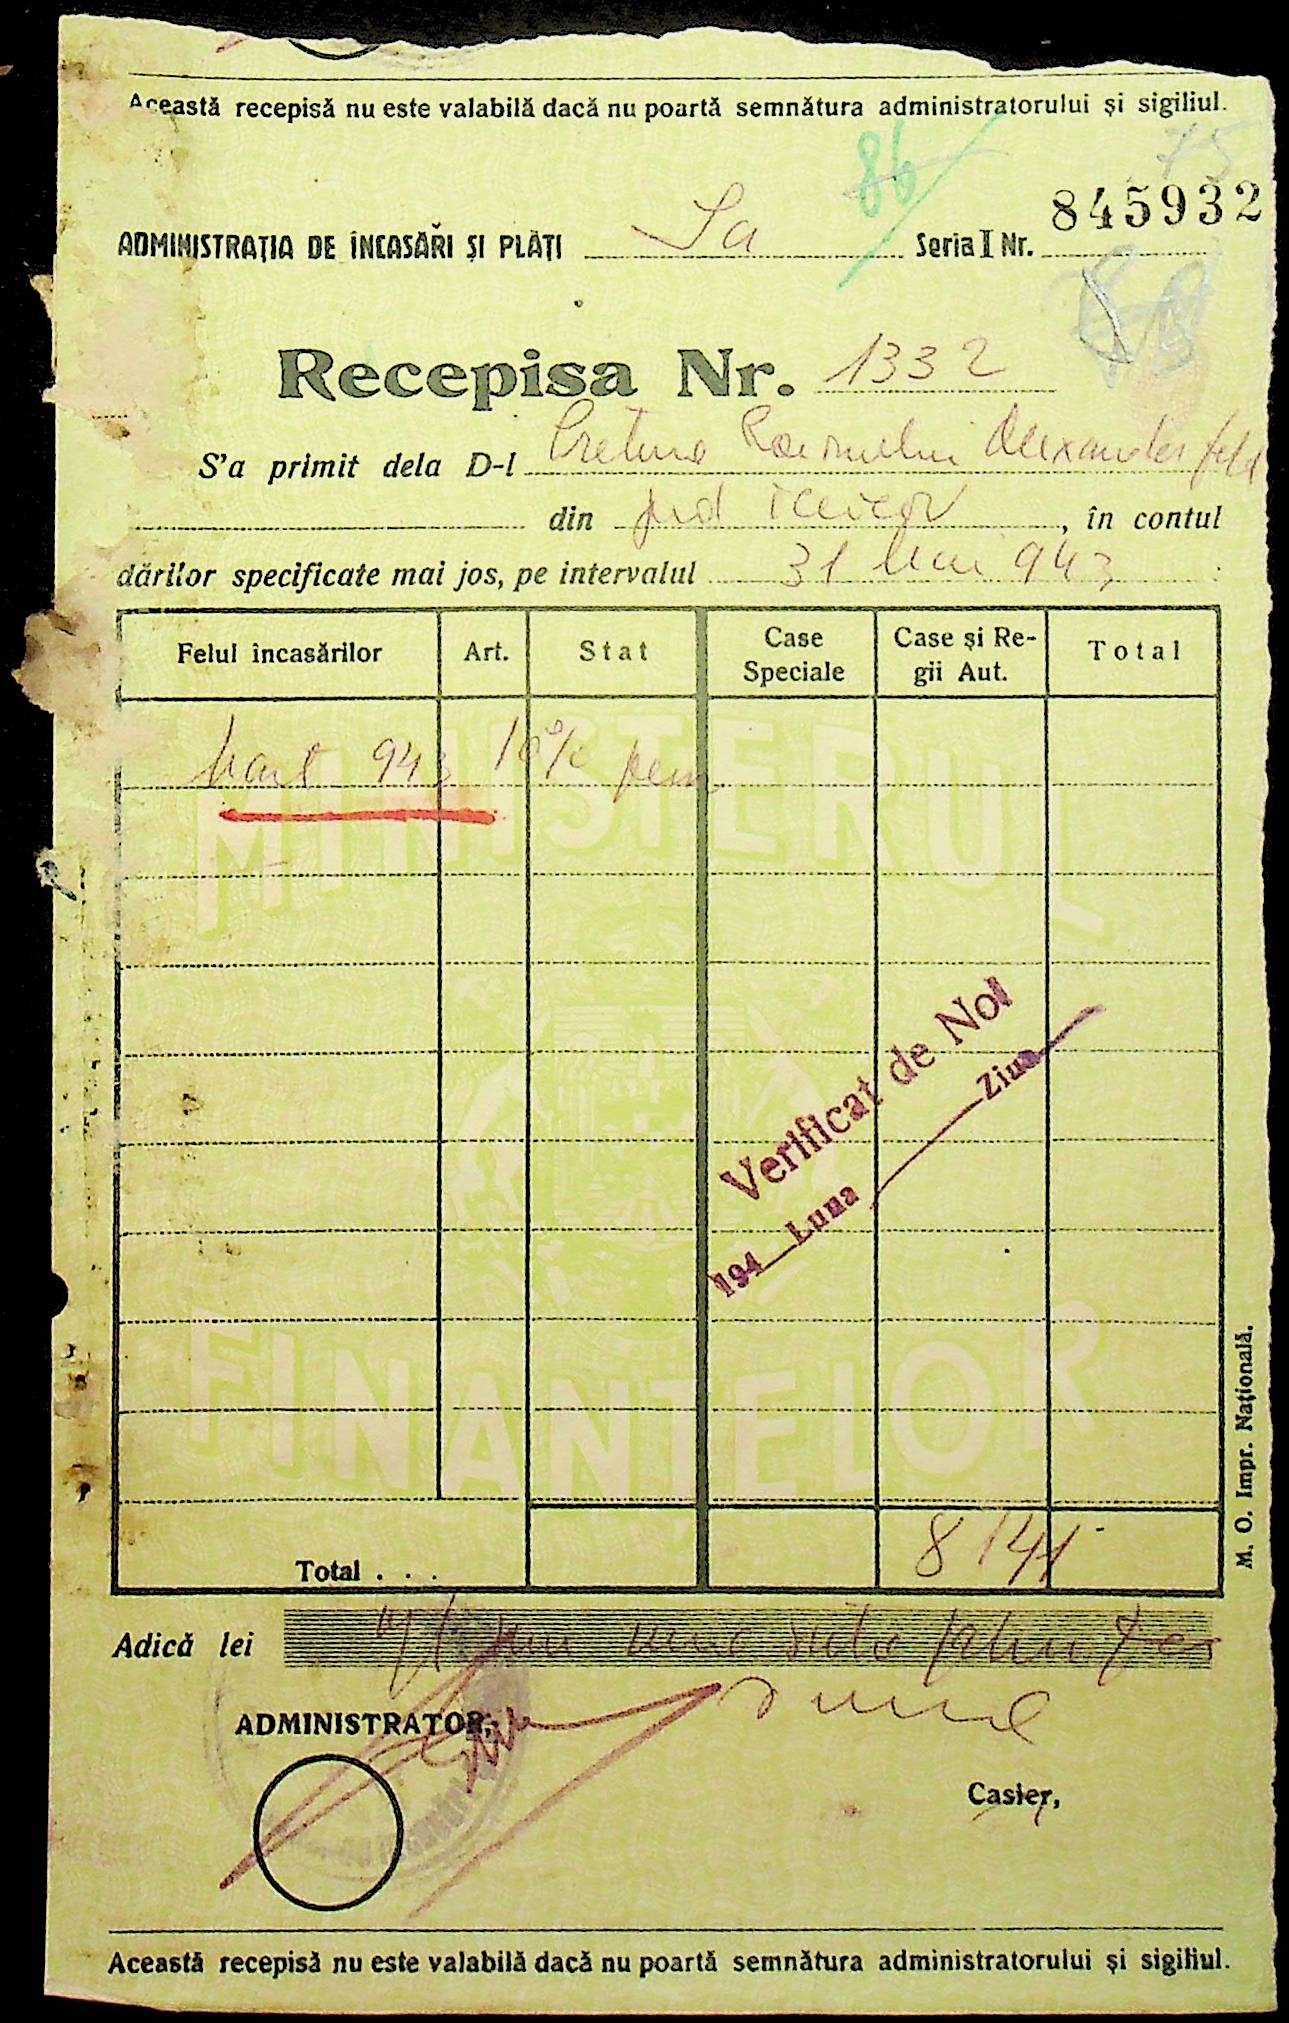 Această recepisă nu este valabilă dacă nu poartă semnătura administratorului și sigiliul.
86
75
845932
ADMINISTRAȚIA DE ÎNCASĂRI ȘI PLĂȚI Seria I Nr.
Recepisa Nr. 1332
S'a primit dela D-l Pretura Raionului Alexanderfeld
din jud , în contul
dărilor specificate mai jos, pe intervalul 31 Mai 943
Felul încasărilor Art. Stat Case Speciale Case și Regii Aut. Total
Mart 943 10%
MINISTERUL
Verificat de Noi
194 Luna Ziua
FINANȚELOR
Total . . . 8141
Adică lei
ADMINISTRATOR,
Casier,
Această recepisă nu este valabilă dacă nu poartă semnătura administratorului și sigiliul.
M. O. Impr. Națională.